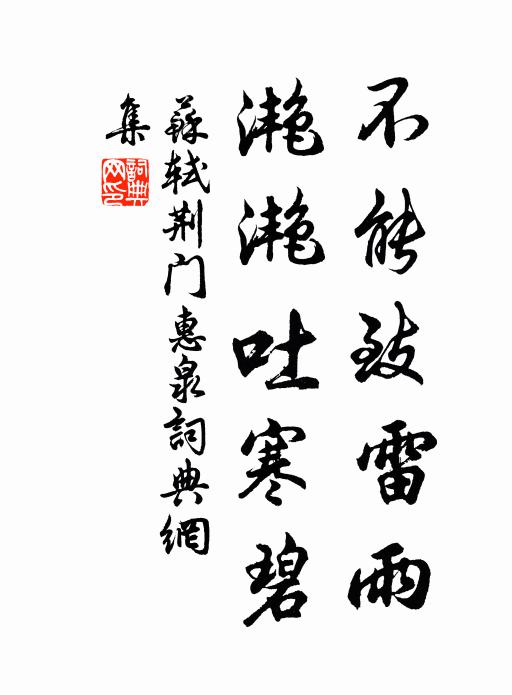 不能致雷雨
灩灩吐寒碧
蘇軾荆门惠泉詞典網
集
詞典
网印